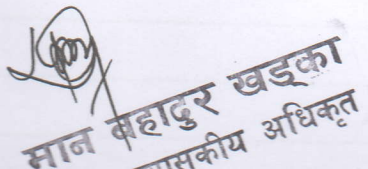 मान बहादुर खड्का
शासकीय अधिकृत